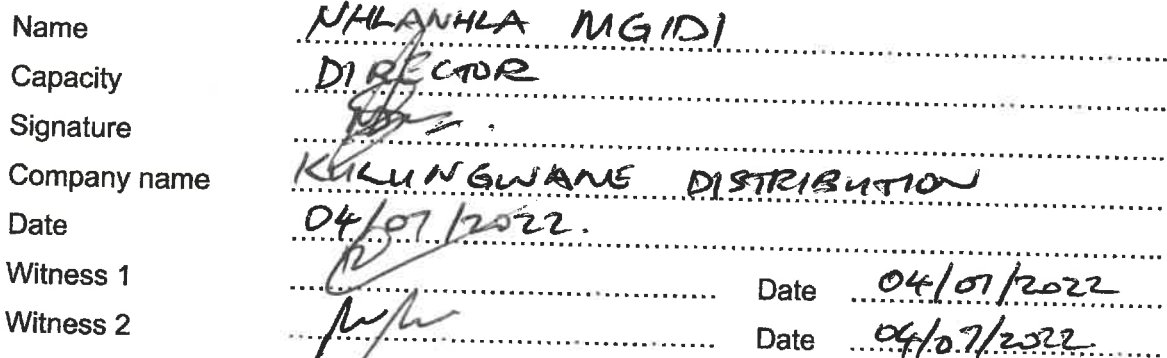 Name NHLANHLA MGIDI
Capacity DIRECTOR
Signature
Company name KULUNGWANE DISTRIBUTION
Date 04/07/2022.
Witness 1 Date 04/07/2022
Witness 2 Date 04/07/2022